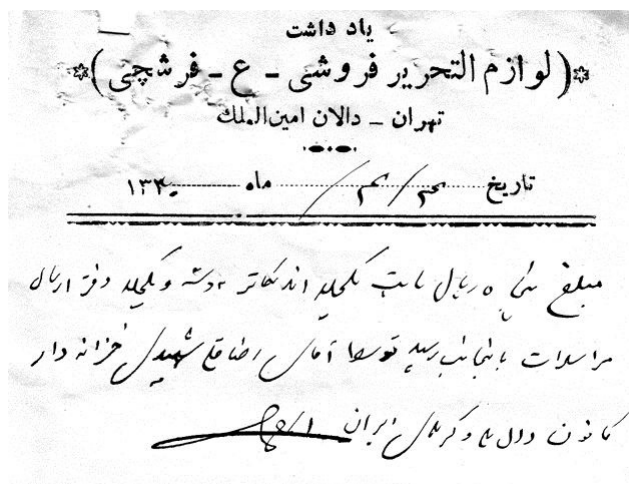 یاد داشت
(لوازم التحریر فروشی - ع - فرشچی)
تهران - دالان امین‌الملک
تاریخ ماه ۱۳۴۰
مبلغ ریال بابت یکجلد اندیکاتر و یکجلد دفتر ارسال
مراسلات باینجانب رسید توسط آقای رضاقلی شهیدی خزانه دار
کانون ایران